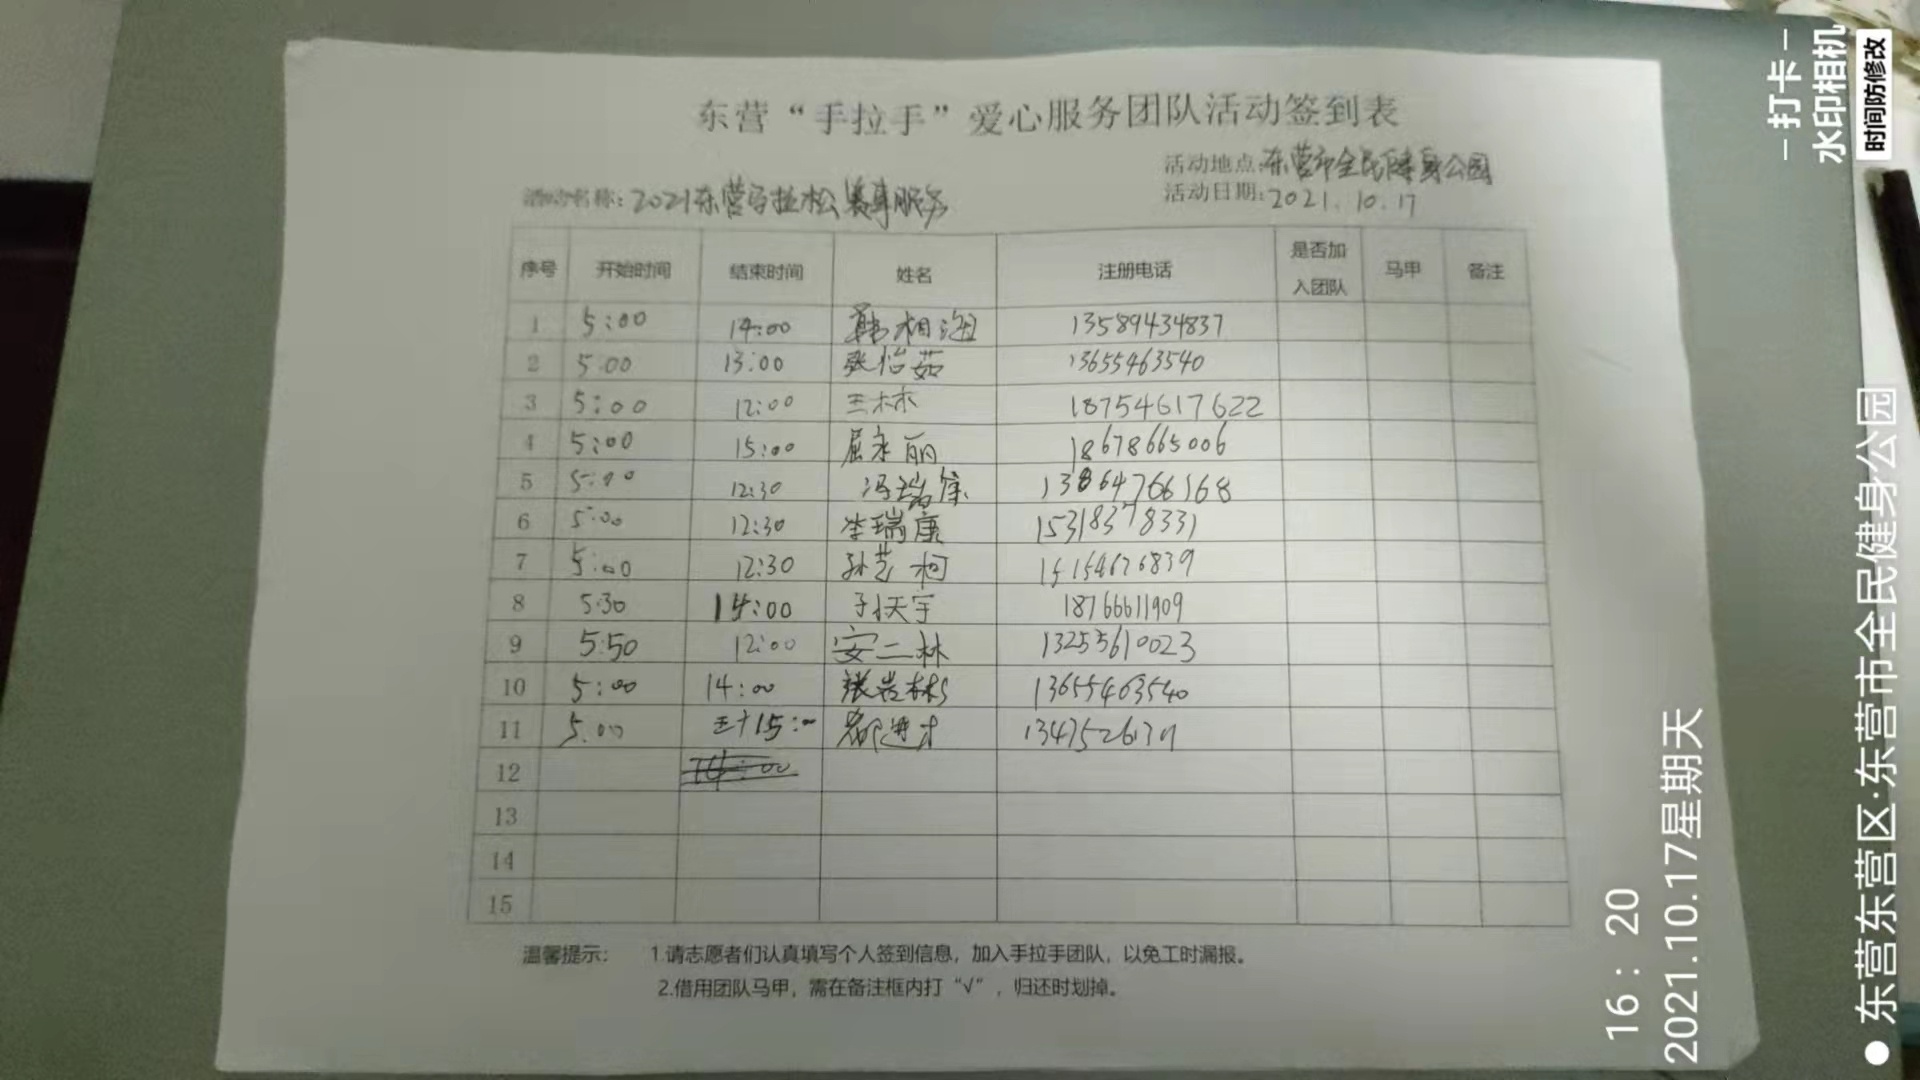 东营“手拉手”爱心服务团队活动签到表
活动地点:东营市全民健身公园
活动名称:2021东营马拉松赛事服务
活动日期:2021.10.17
序号 开始时间 结束时间 姓名 注册电话 是否加入团队 马甲 备注
1 5:00 14:00 韩相海 13589434837
2 5:00 13:00 张怡茹 13655463540
3 5:00 12:00 王林林 18754617622
4 5:00 15:00 屈永丽 18678665006
5 5:00 12:30 冯瑞 13864766168
6 5:00 12:30 李瑞康 15318378331
7 5:00 12:30 孙艺柯 15154676839
8 5:30 14:00 孙天宇 18766611909
9 5:50 12:00 安二林 13255610023
10 5:00 14:00 张 彬 13655463540
11 5:00 15:00 进才
12
13
14
15
温馨提示: 1.请志愿者们认真填写个人签到信息，加入手拉手团队，以免工时漏报。
2.借用团队马甲，需在备注框内打“√”，归还时划掉。
16:20
2021.10.17星期天
东营东营区·东营市全民健身公园
打卡
水印相机
时间防修改